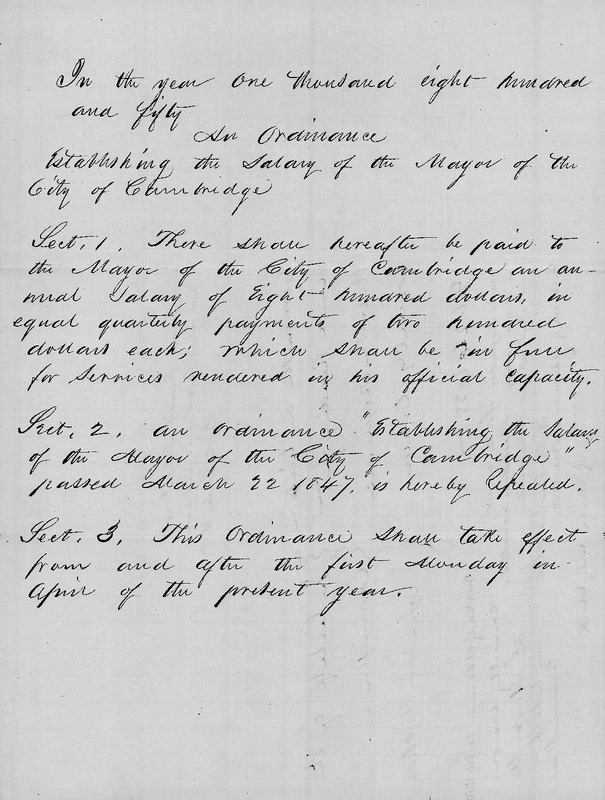 In the year One thousand eight hundred
and fifty
An Ordinance
Establishing the Salary of the Mayor of the
City of Cambridge
Sect. 1. There shall hereafter be paid to
the Mayor of the City of Cambridge an an-
nual Salary of Eight hundred dollars, in
equal quarterly payments of two hundred
dollars each; which shall be in full
for Services rendered in his official capacity.
Sect. 2. an ordinance "Establishing the Salary
of the Mayor of the City of Cambridge"
passed March 22 1847, is hereby Repealed.
Sect. 3. This Ordinance shall take effect
from and after the first Monday in
April of the present year.